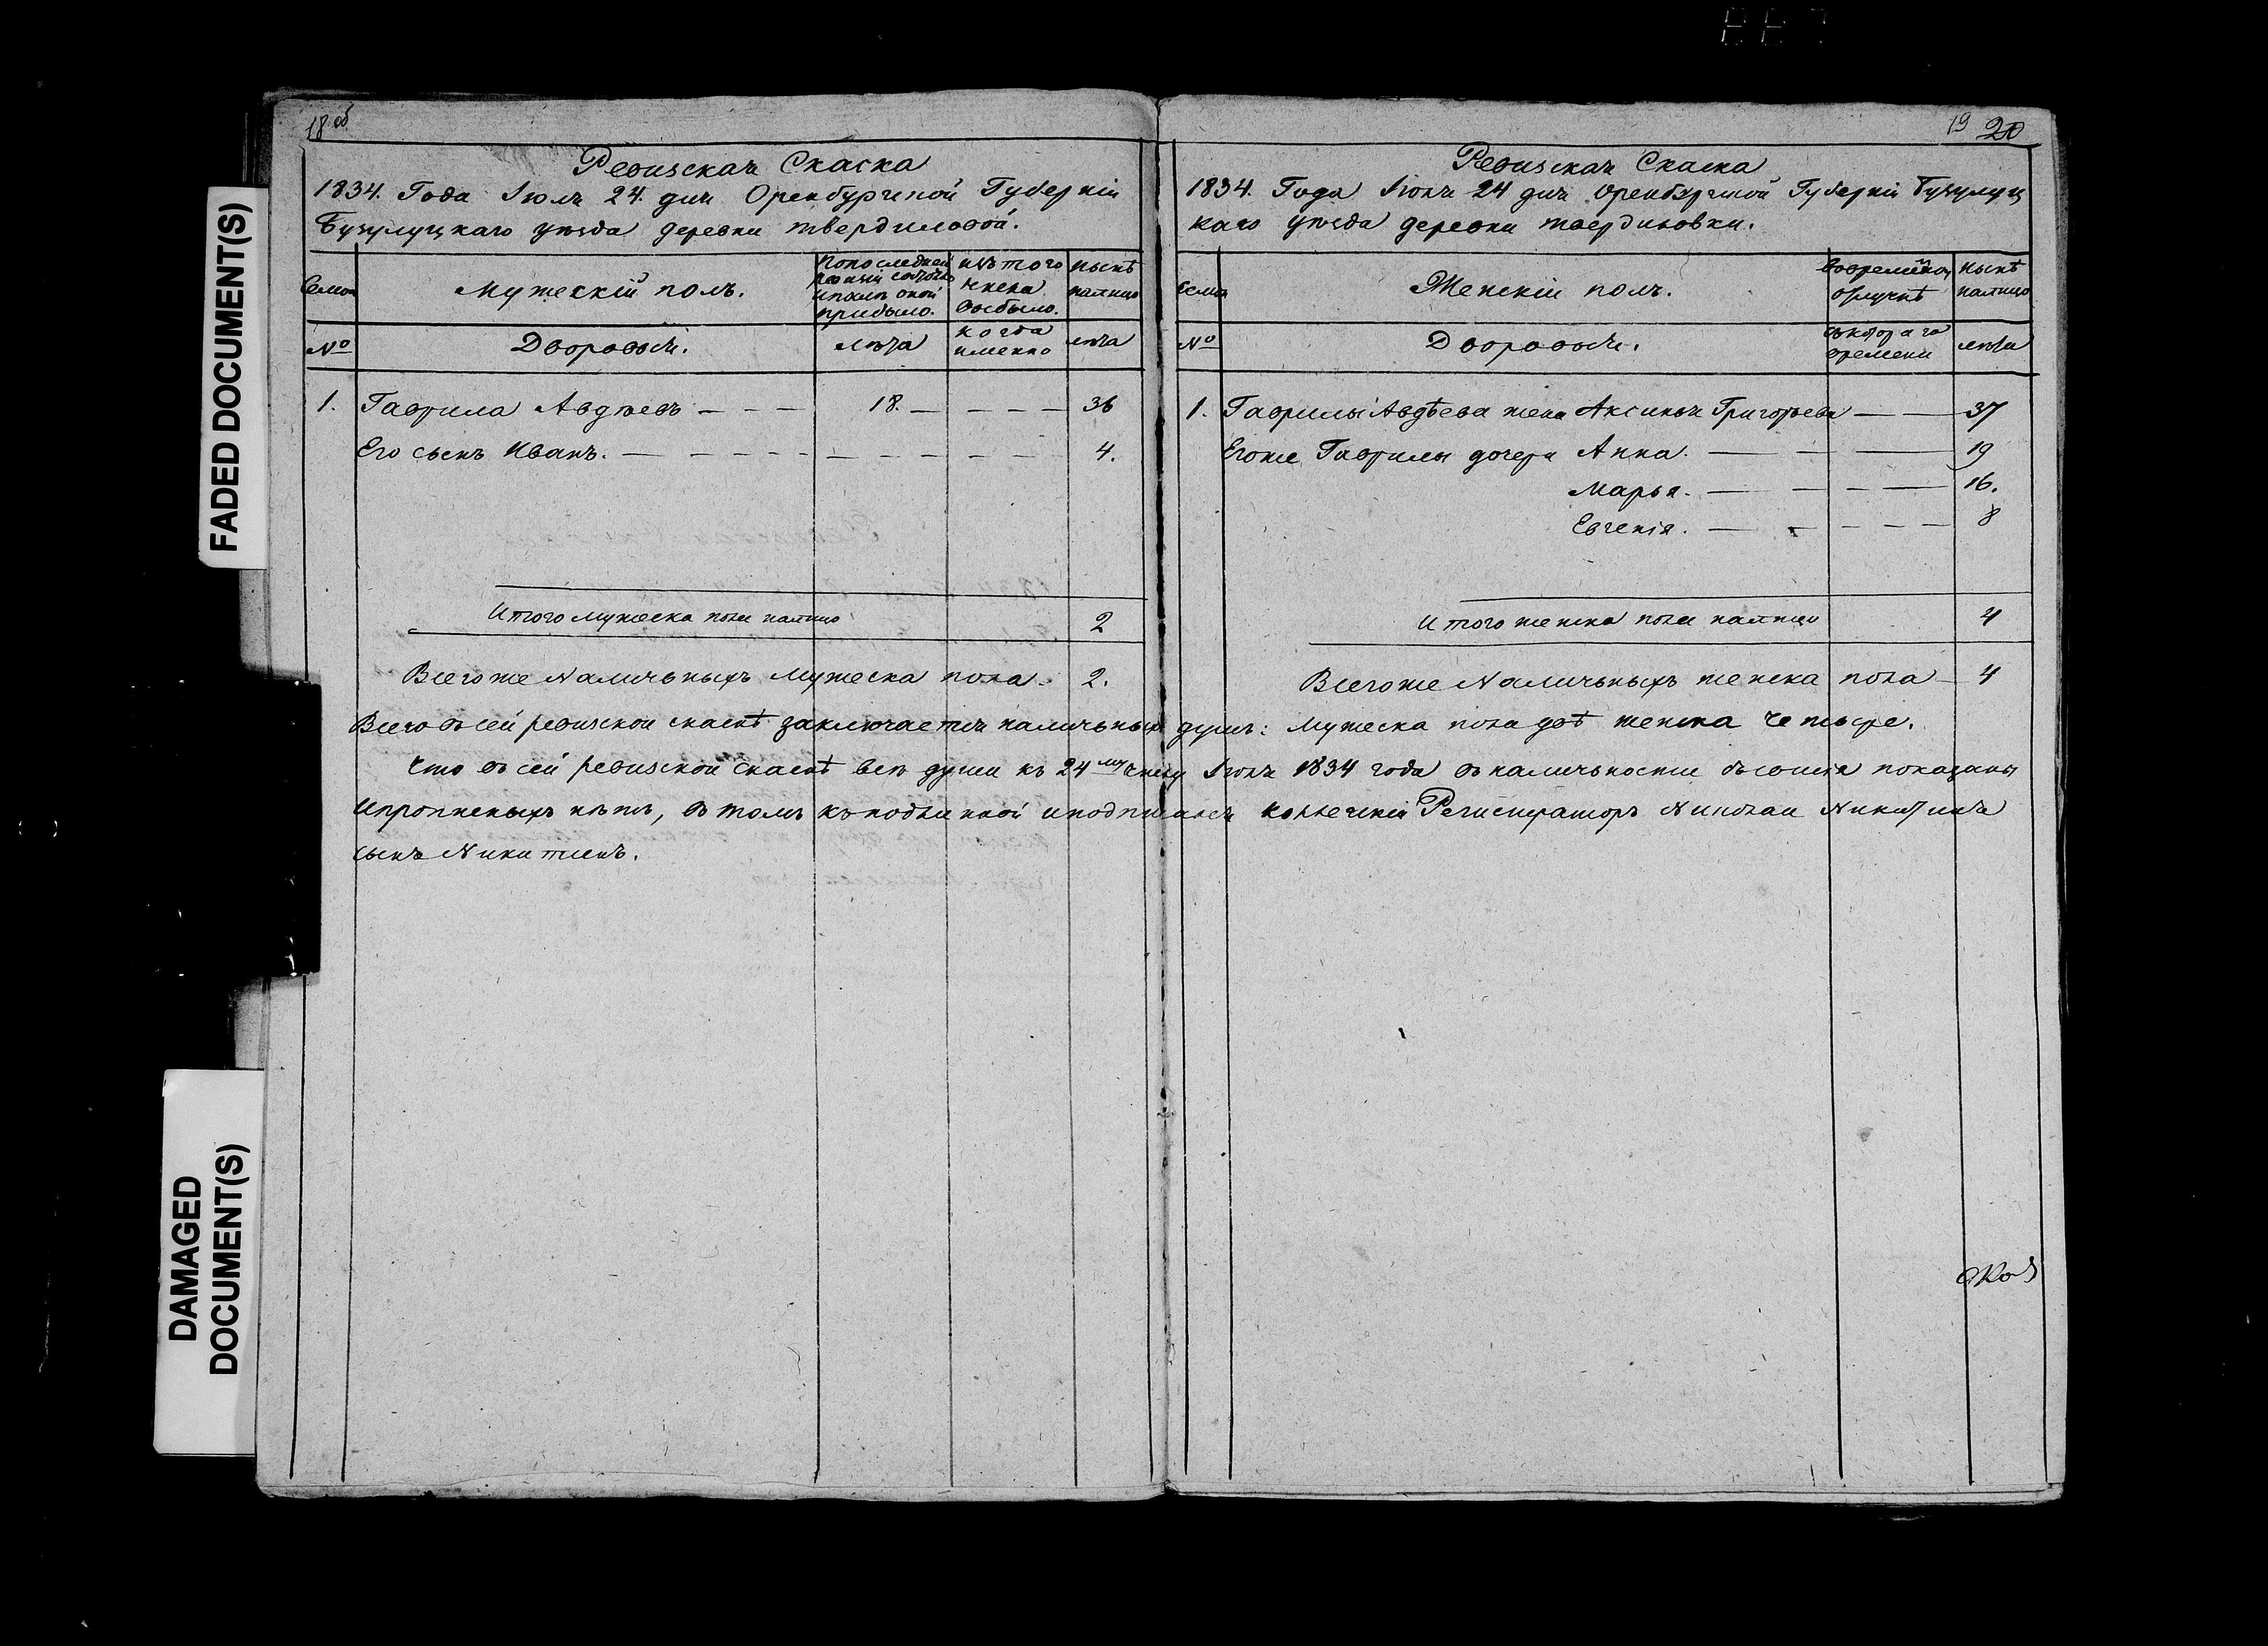 18 об
Ревизская Скаска
1834. Года Июля 24. дня Оренбургской Губерніи
Бузулуцкаго уѣзда деревни твердиловой.
Семьи
Мужескій полъ.
По последней ревизіи состояло и после оной прибыло.
изъ того числа выбыло.
нынѣ налицо
№
Дворовыя.
лѣта
когда именно
лѣта
1. Гаврила Авдѣевъ - - - 18. - - - - 36
Его сынъ Иванъ. - - - - - - - - - 4.
Итого мужеска пола налицо 2
Всего же Наличьныхъ мужеска пола. 2.
19 20
Ревизская Скаска
1834. Года Июля 24 дня Оренбургской Губерніи Бузулуц
каго уѣзда деревни твердиловки.
Семьи
Женскій полъ.
во временной отлучкѣ
нынѣ налицо
№
Дворовыя.
съ котораго времени
лѣта
1. Гаврилы Авдѣева жена Аксинья Григорьева — — 37
Егоже Гаврилы дочери Анна. — - — 19
Марья. — - - — 16.
Евгенія. — - - - - 8
Итого женска пола налицо 4
Всего же Наличьныхъ женска пола 4
Всего въ сей ревизской скаскѣ заключается наличьныхъ душъ: Мужеска пола двѣ женска четыре.
Что въ сей ревизской скаскѣ все души къ 24му числу Июля 1834 года въ наличьности въсомъ показаны
и прописныхъ нѣтъ, въ томъ къ подлинной и подписался коллежскій Регистраторъ Николай Никитинъ
сынъ Никитинъ.
FADED DOCUMENT(S)
DAMAGED
DOCUMENT(S)